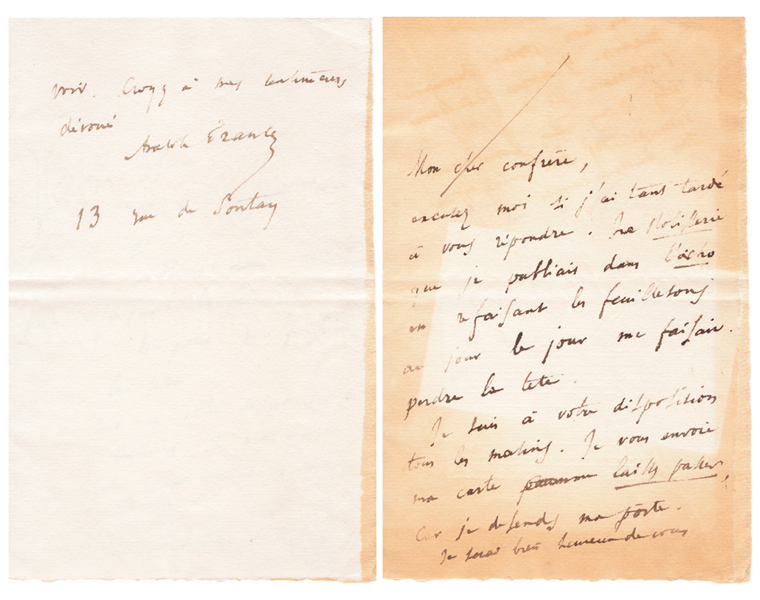 Mon cher confrère,
excusez moi si j'ai tant tardé
à vous répondre. La Rotisserie
que je publiais dans l'écho
en refaisant les feuilletons
au jour le jour me faisait
perdre la tête.
Je suis à votre disposition
tous les matins. Je vous envoie
ma carte laissez passer,
car je defends ma porte.
Je serai bien heureux de vous
voir. Croyez à mes sentiments
dévoué
Anatole France
13 rue de Sontay